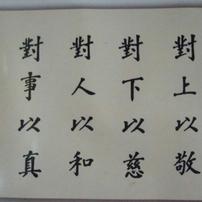 對上以敬
對下以慈
對人以和
對事以真